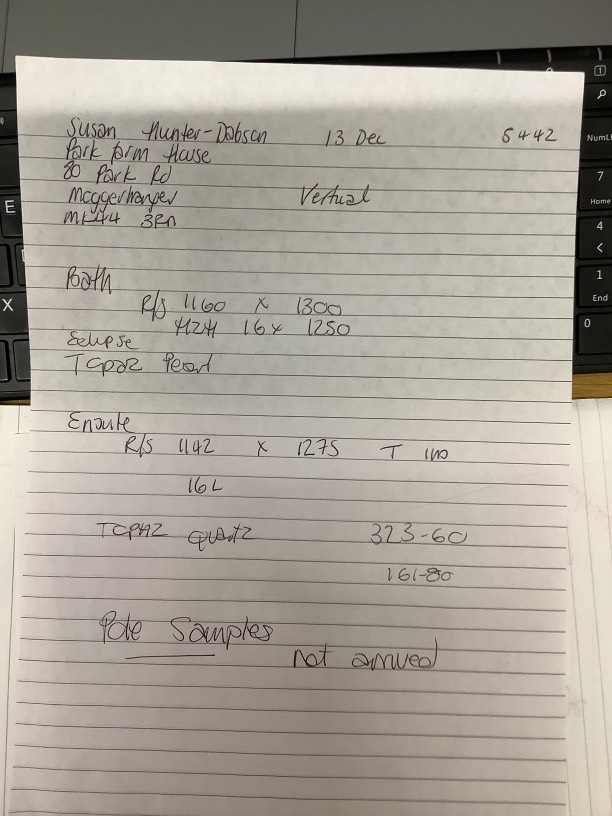 Susan Hunter-Dobson 13 Dec 5442
Park farm House
20 Park Rd
Moggerhanger Vertual
MK44 3RN
Bath
R/S 1160 x 1300
16 x 1250
Eclipse
Topaz Pearl
Ensuite
R/S 1142 x 1275 T
16 L
TOPAZ quartz 323-60
161-80
Pole Samples
not arrived
E
X
NumL
7
Home
4
<
1
End
0